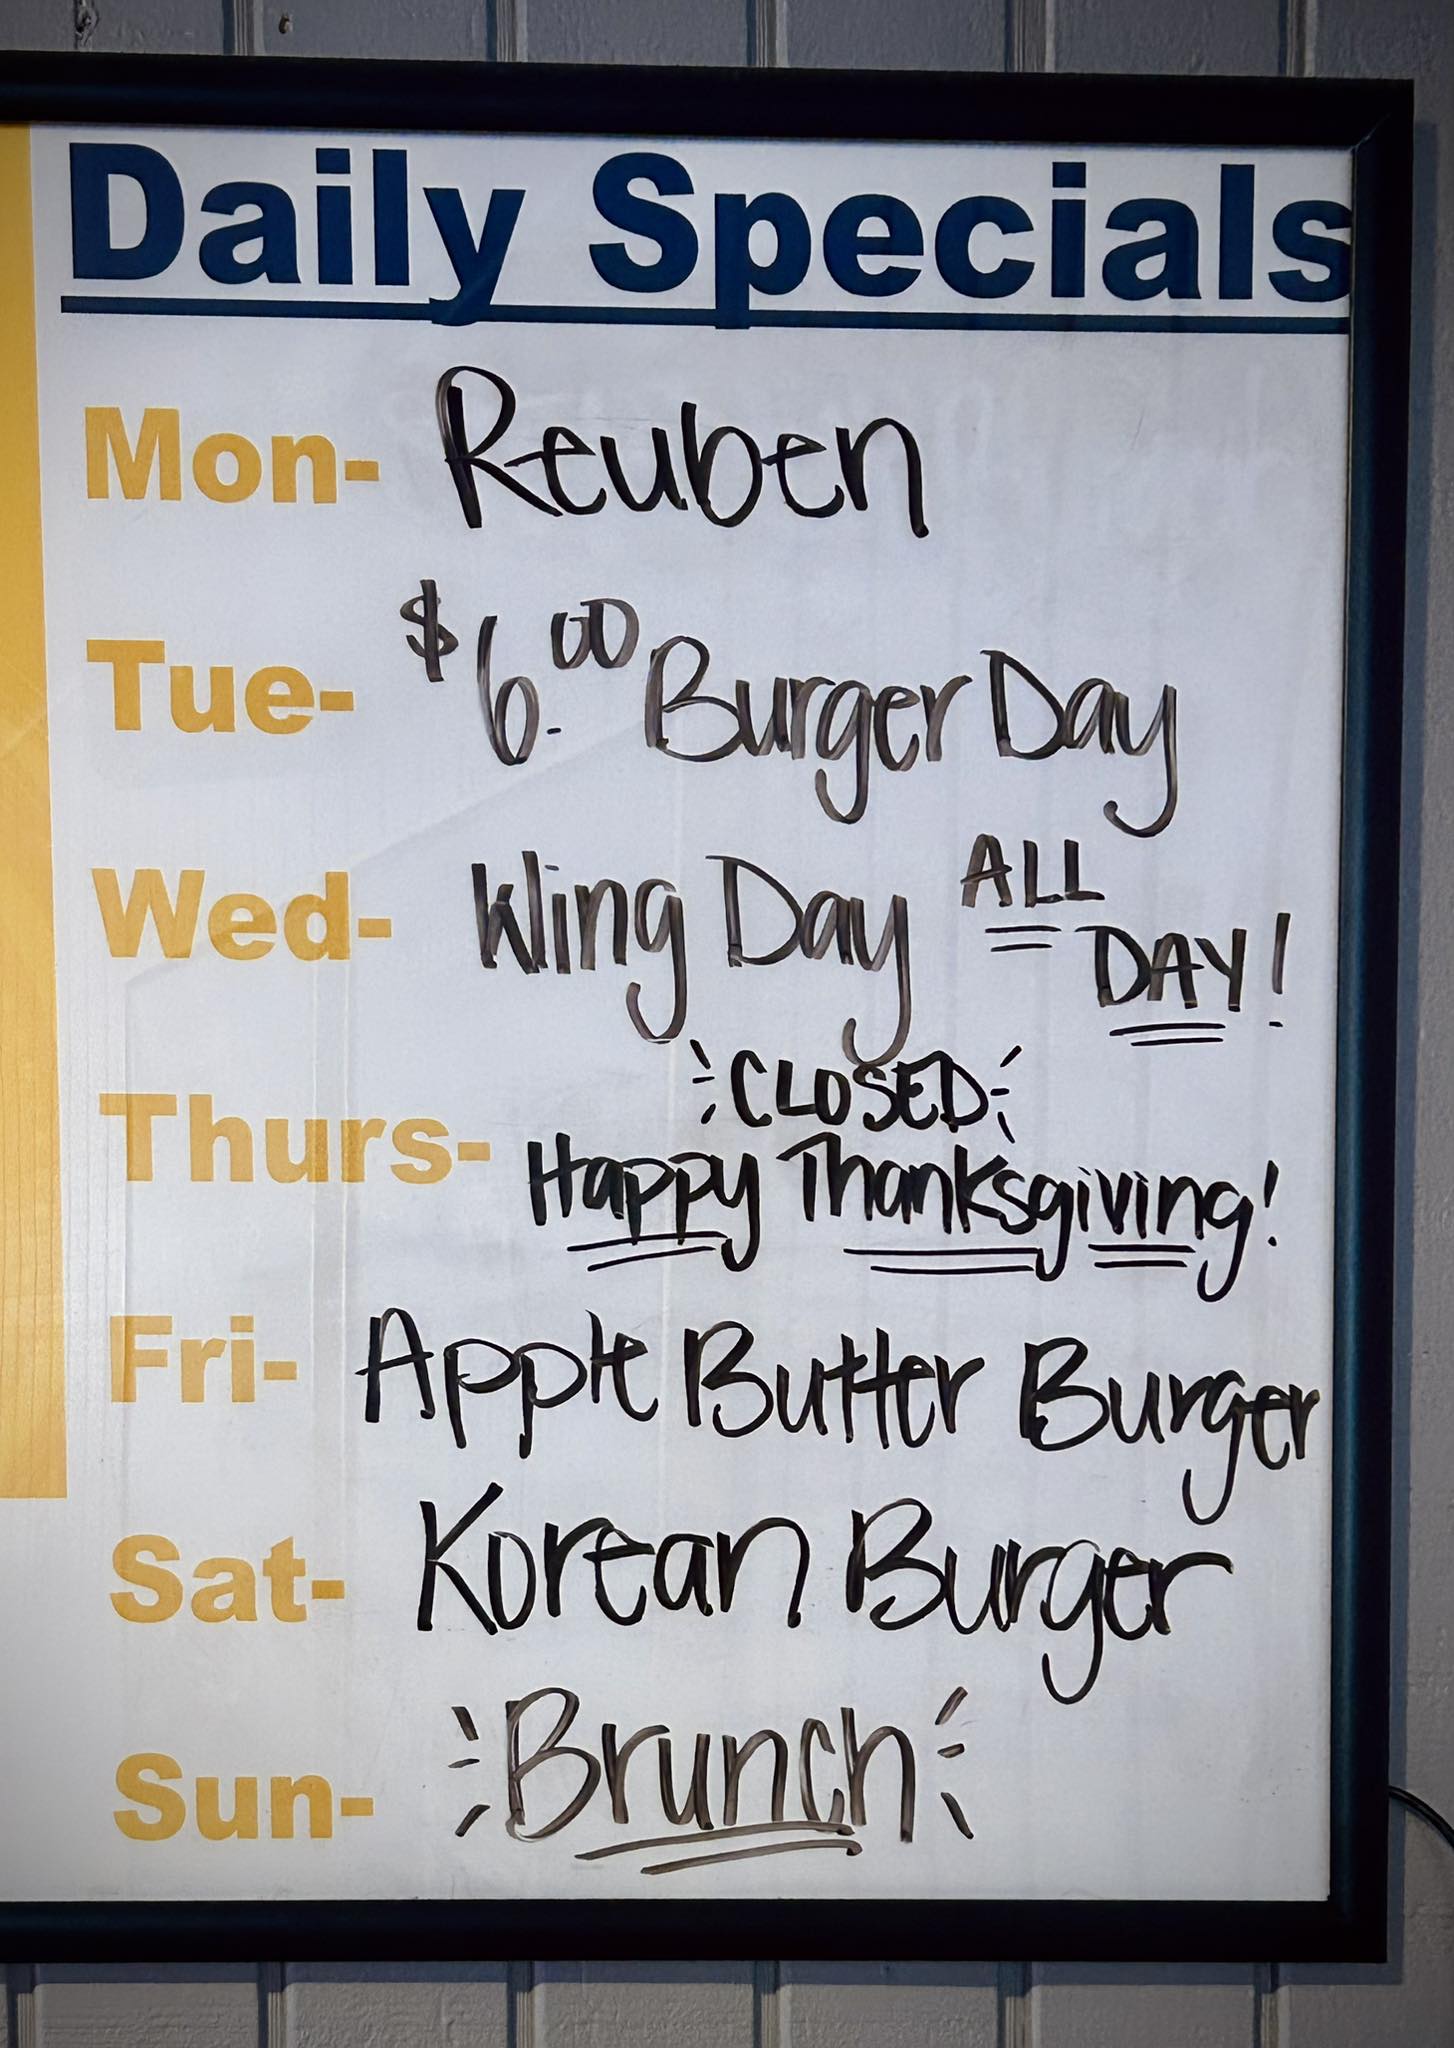 Daily Specials
Mon- Reuben
Tue- $6.00 Burger Day
Wed- Wing Day ALL DAY!
CLOSED
Thurs- Happy Thanksgiving!
Fri- Apple Butter Burger
Sat- Korean Burger
Sun- Brunch